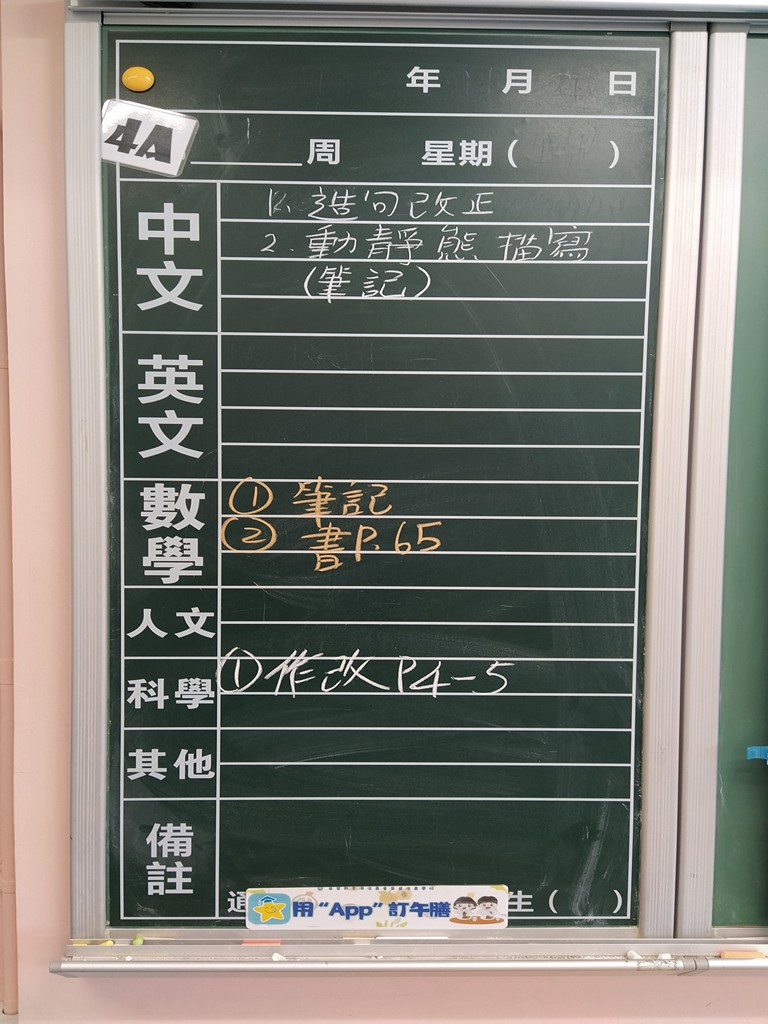 年 月 日
4A
周 星期( )
中文
1. 造句改正
2. 動靜態描寫
(筆記)
英文
數學
① 筆記
② 書P.65
人文
科學
① 作改 P4-5
其他
備註
通
生( )
用“App”訂午膳